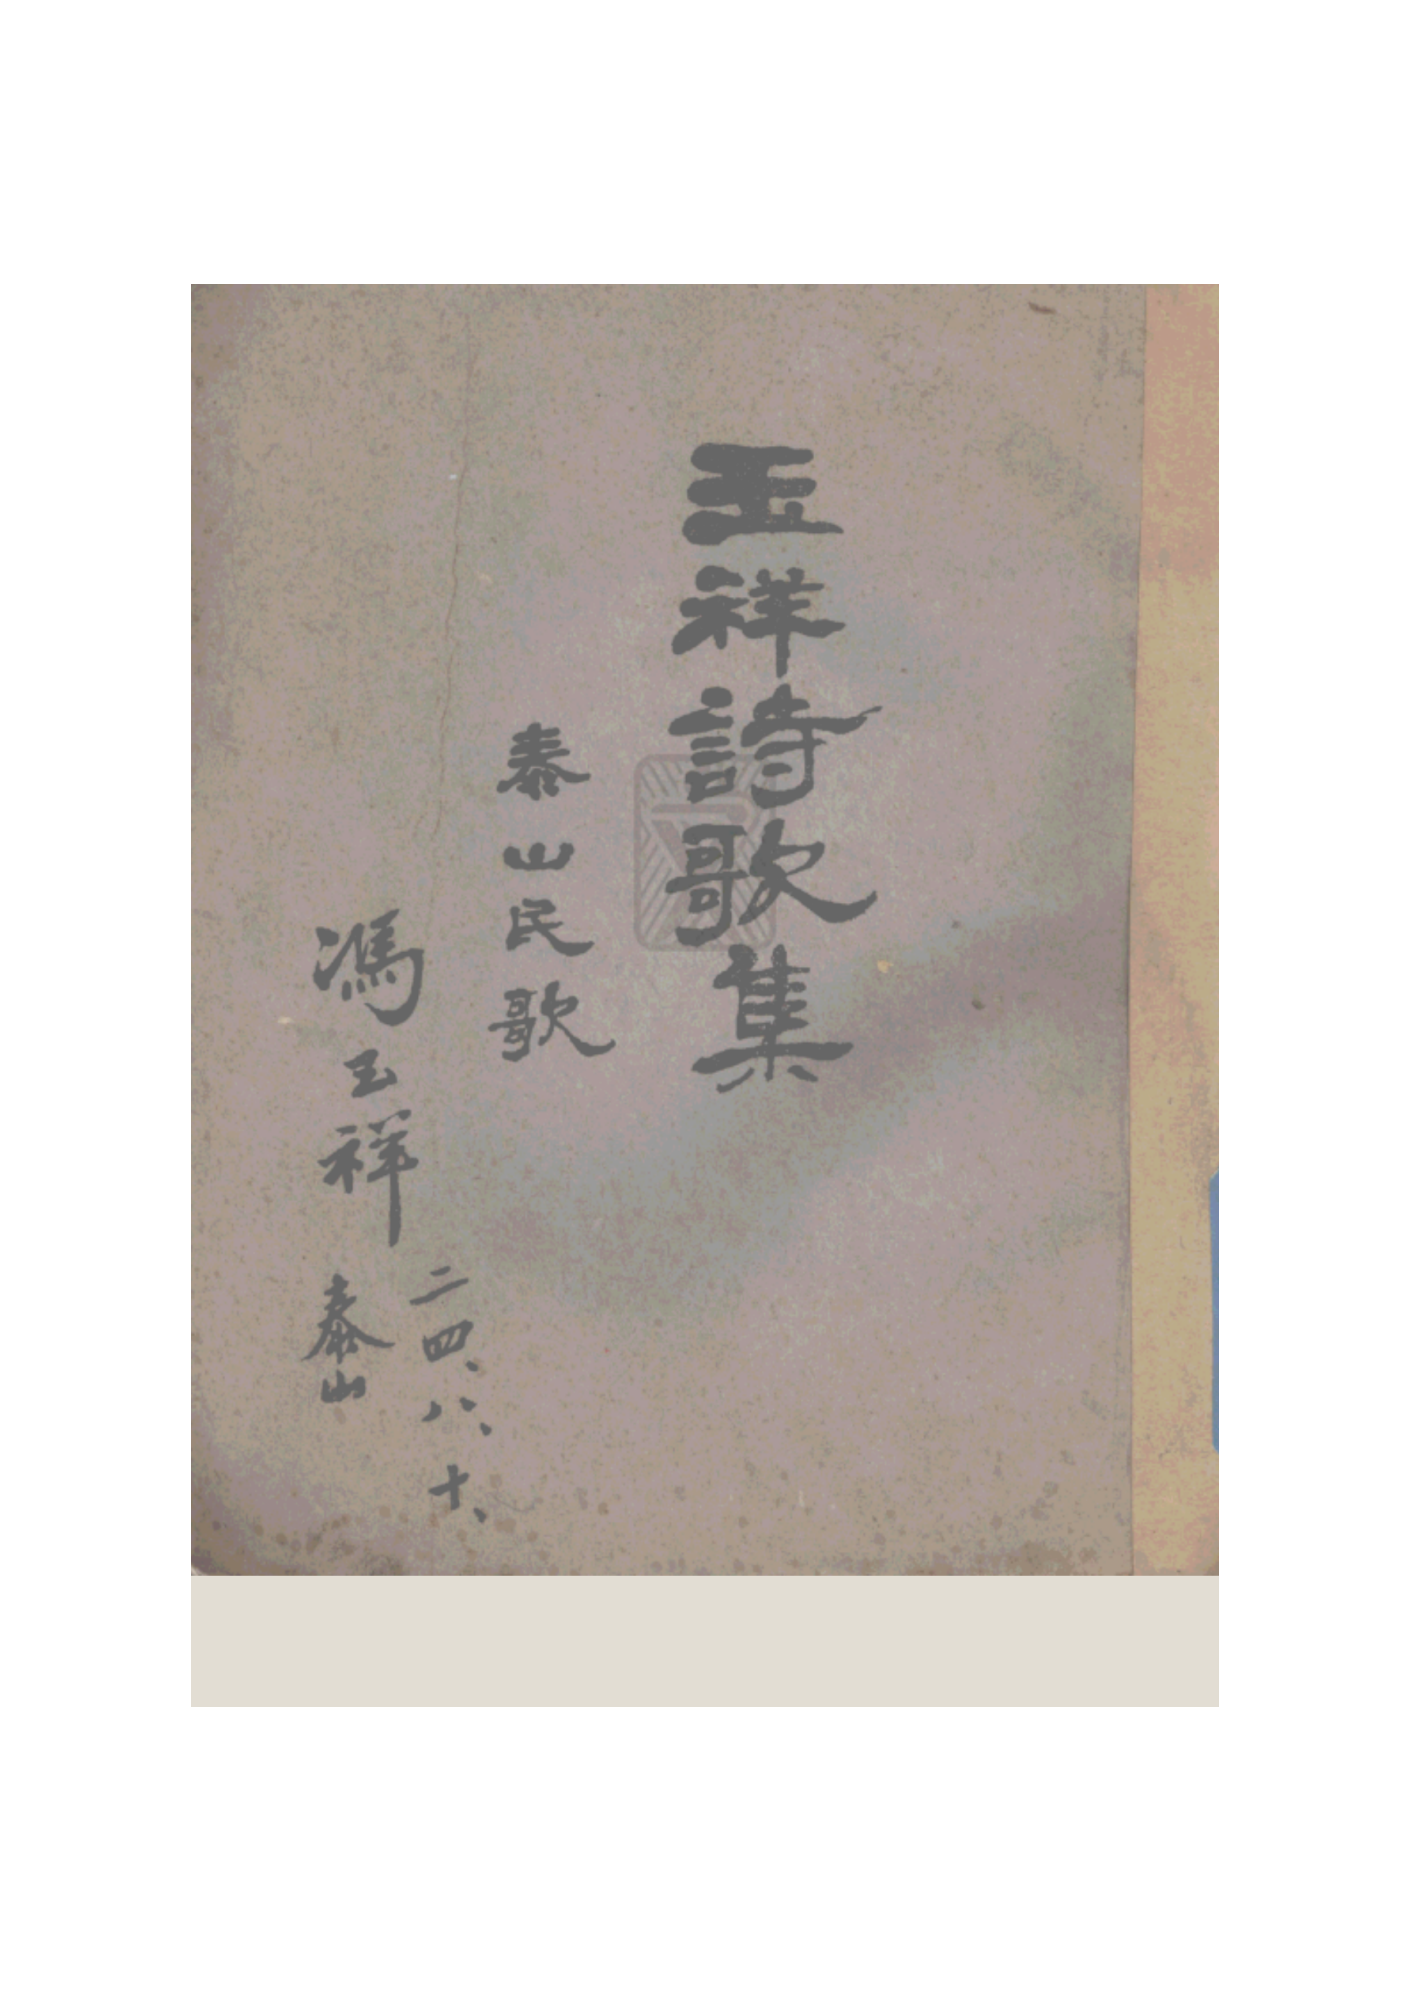 玉祥詩歌集
泰山民歌
馮玉祥
二四、八、十、
泰山